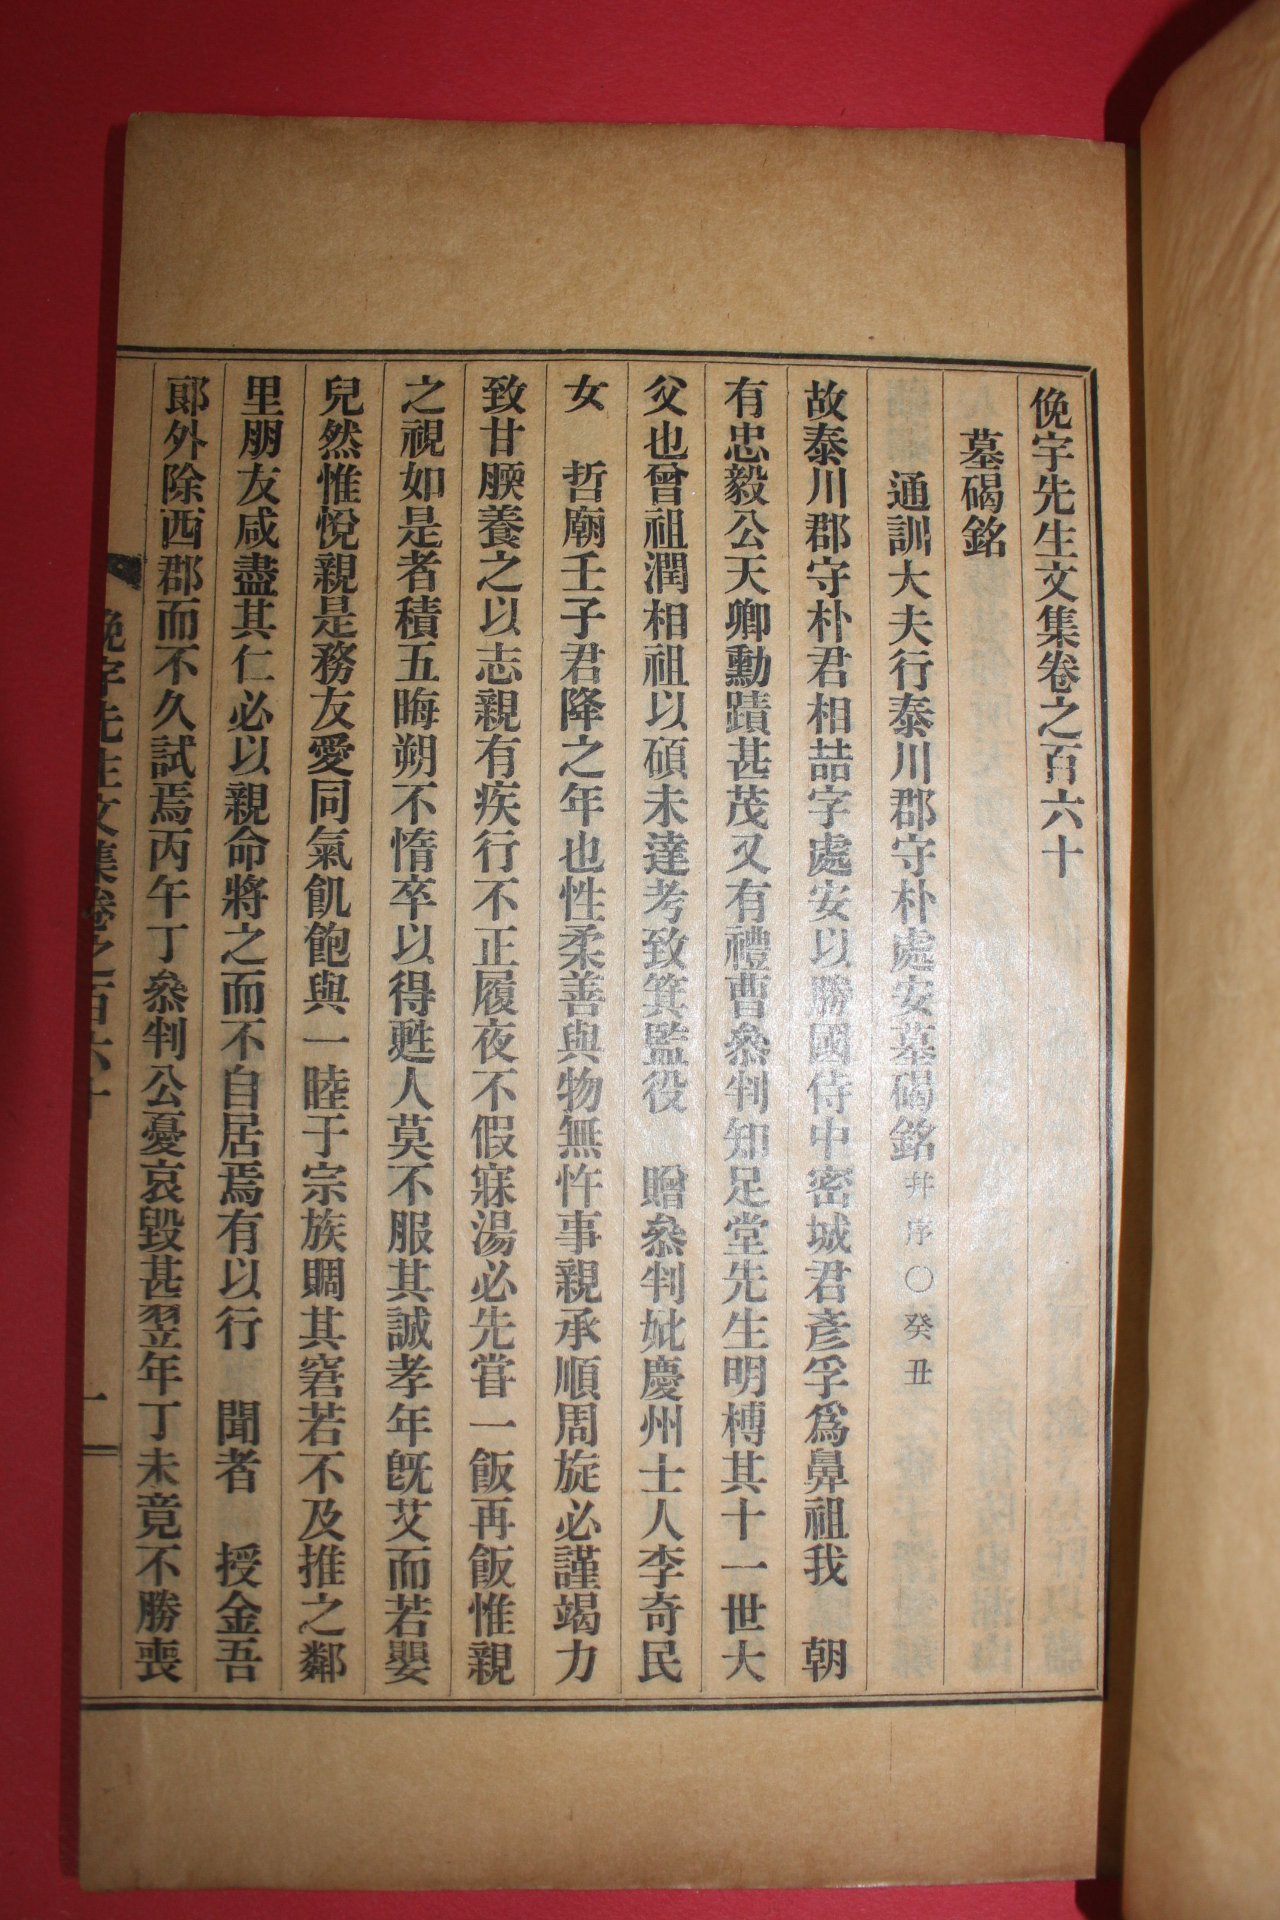 俛宇先生文集卷之百六十
墓碣銘
通訓大夫行泰川郡守朴處安墓碣銘 幷序○癸丑
故泰川郡守朴君相喆字處安以勝國侍中密城君彥孚爲鼻祖我　朝
有忠毅公天卿勳蹟甚茂又有禮曹叅判知足堂先生明榑其十一世大
父也曾祖潤相祖以碩未達考致箕監役　贈叅判妣慶州士人李奇民
女　哲廟壬子君降之年也性柔善與物無忤事親承順周旋必謹竭力
致甘腝養之以志親有疾行不正履夜不假寐湯必先甞一飯再飯惟親
之視如是者積五晦朔不惰卒以得甦人莫不服其誠孝年旣艾而若嬰
兒然惟悅親是務友愛同氣飢飽與一睦于宗族賙其窘若不及推之鄰
里朋友咸盡其仁必以親命將之而不自居焉有以行　聞者　授金吾
郞外除西郡而不久試焉丙午丁叅判公憂哀毀甚翌年丁未竟不勝喪
俛宇先生文集卷之百六十　一